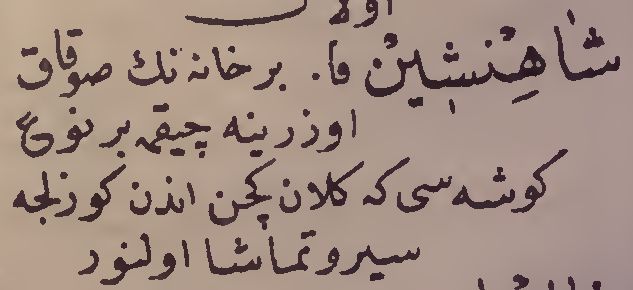 اولا
شَاهِنِشِينْ فا. بر خانه نك صوقاق
اوزرينه چيقمه بر نوع
كوشه سى كه كلان كچن اندن كوزلجه
سير و تماشا اولنور